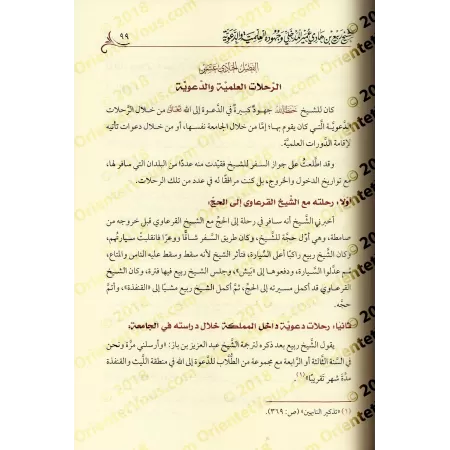 الشيخ ربيع بن هادي عمير المدخلي وجهوده العلمية والدعوية
٩٩
الفصل الحادي عشر
الرحلات العلميَّة والدَّعويَّة
كان للشيخ حفظه الله جهودٌ كبيرةٌ في الدَّعوة إلى الله تعالى من خلال الرَّحلات
الدَّعويَّة الَّتي كان يقوم بها؛ إمَّا من خلال الجامعة نفسها، أو من خلال دعوات تأتيه
لإقامة الدَّورات العلميَّة.
وقد اطَّلعتُ على جواز السفر للشيخ فقيَّدت منه عددًا من البلدان التي سافر لها،
مع تواريخ الدخول والخروج، بل كنت مرافقًا له في عدد من تلك الرحلات.
أولا: رحلته مع الشَّيخ القرعاوي إلى الحجِّ:
أخبرني الشَّيخ أنه سافر في رحلة إلى الحجِّ مع الشَّيخ القرعاوي قبل خروجه من
صامطة، وهي أوَّل حجَّة للشَّيخ، وكان طريق السفر شاقًّا ووعرًا فانقلبتْ سيَّارتُهم،
وكان الشَّيخ ربيع راكبًا أعلى السَّيارة، فتأثر الشيخ لأنَّه سقط وسقط عليه الناس والمتاع،
ثم عدَّلوا السَّيارة، ودفعوها إلى «بَيْش»، وجلس الشَّيخ ربيع فيها فترة، وكان الشَّيخ
القرعاوي قد أكمل مسيرته إلى الحجِّ، ثمَّ أكمل الشَّيخ ربيع مشيًا إلى «القنفذة»، وأتمَّ
حجَّه.
ثانيا: رحلات دعويَّة داخل المملكة خلال دراسته في الجامعة:
يقول الشَّيخ ربيع بعد ذكره لترجمة الشَّيخ عبد العزيز بن باز: «وأرسلني مرَّة ونحن
في السَّنة الثَّالثة أو الرَّابعة مع مجموعة من الطُّلَّاب للدَّعوة إلى الله في منطقة اللَّيث والقنفذة
مدَّة شهر تقريبًا»(١).
(١) «تذكير النابهين» (ص: ٣١٩).
© 2018
OrientetVous.com